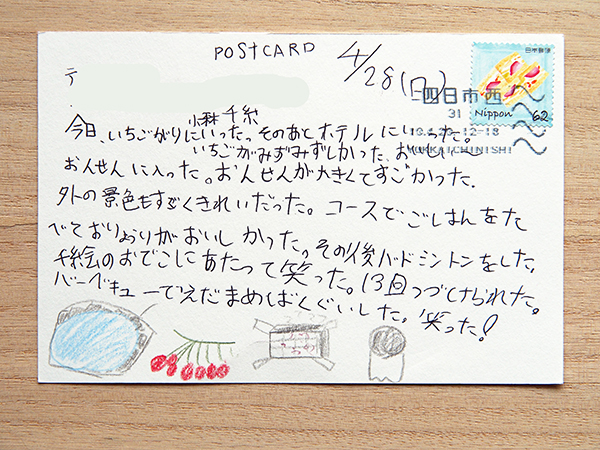 POSTCARD
4/28(日)
〒
日本郵便
Nippon 62
四日市西
31
12-18
YOKKAICHINISHI
今日、いちごがりにいった。そのあとホテルにいった。
いちごがみずみずしかった、おいしい
おんせんに入った。おんせんが大きくてすごかった.
外の景色もすごくきれいだった。コースでごはんをた
べておりょうりがおいしかった。その後バドミントンをした,
千絵のおでこにあたって笑った。13回つづけられた。
バーベキューでえだまめばくぐいした。笑った!